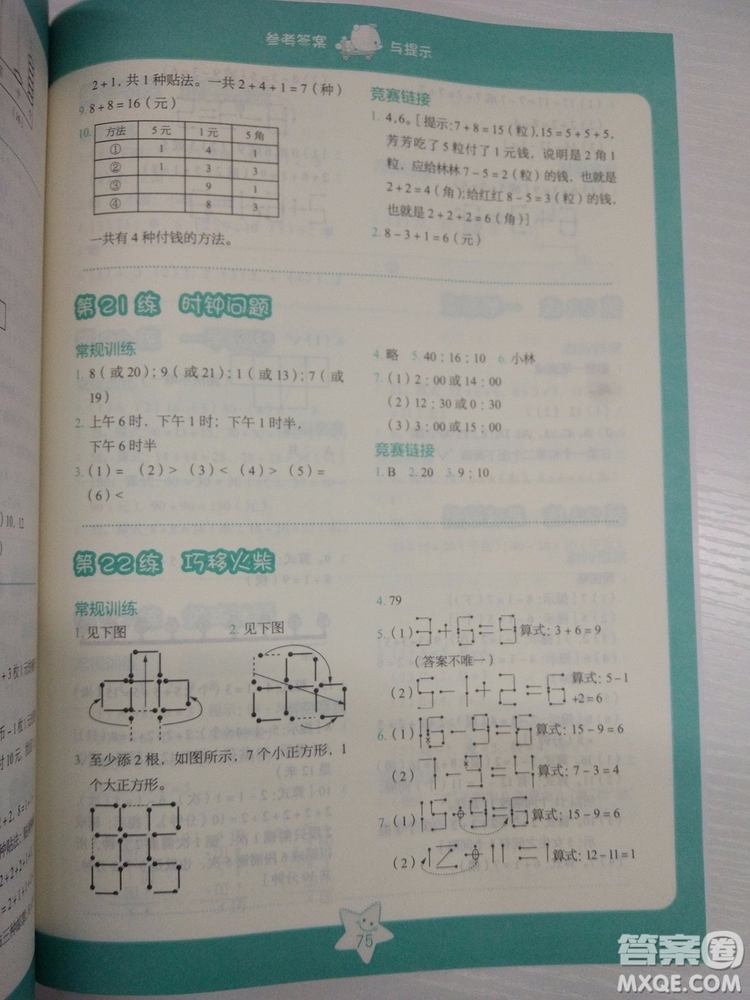 参考答案 与提示
2+1,共1种贴法。一共2+4+1=7(种)
9. 8+8=16(元)
10.
方法 5元 1元 5角
① 1 4 1
② 1 3 3
③ 9 1
④ 8 3
一共有4种付钱的方法。
竞赛链接
1. 4,6。[提示:7+8=15(粒),15=5+5+5,
芳芳吃了5粒付了1元钱,说明是2角1
粒,应给林林7-5=2(粒)的钱,也就是
2+2=4(角);给红红8-5=3(粒)的钱,
也就是2+2+2=6(角)]
2. 8-3+1=6(元)
第21练 时钟问题
常规训练
1. 8(或20);9(或21);1(或13);7(或
19)
2. 上午6时,下午1时;下午1时半,
下午6时半
3. (1)= (2)> (3)< (4)> (5)=
(6)<
4. 略 5. 40;16;10 6. 小林
7. (1)2:00或14:00
(2)12:30或0:30
(3)3:00或15:00
竞赛链接
1. B 2. 20 3. 9;10
第22练 巧移火柴
常规训练
1. 见下图 2. 见下图
3. 至少添2根,如图所示,7个小正方形,1
个大正方形。
4. 79
5. (1) 3+6=9 算式:3+6=9
(答案不唯一)
(2) 5-1+2=6 算式:5-1
+2=6
6. (1) 16-9=6 算式:15-9=6
(2) 7-9=4 算式:7-3=4
7. (1) 15+9=6 算式:15-9=6
(2) 12+11=1 算式:12-11=1
75
答案圈
MXQE.COM